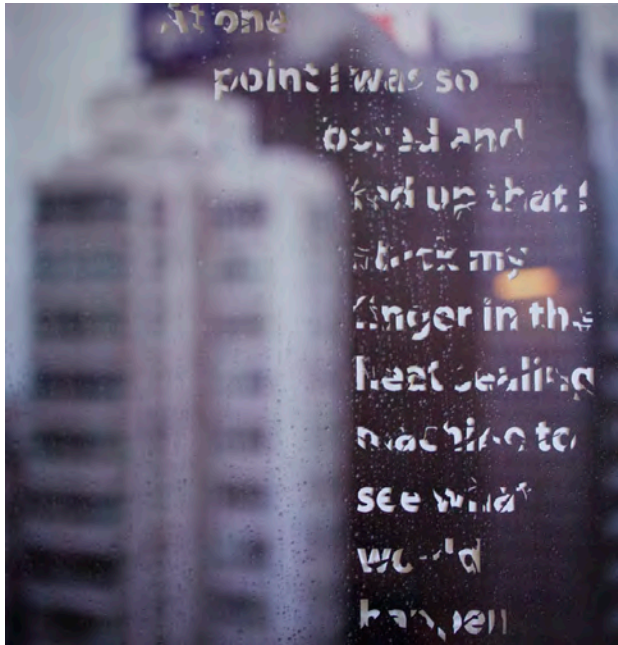 At one
point I was so
bored and
fed up that I
stuck my
finger in the
heat sealing
machine to
see what
would
happen